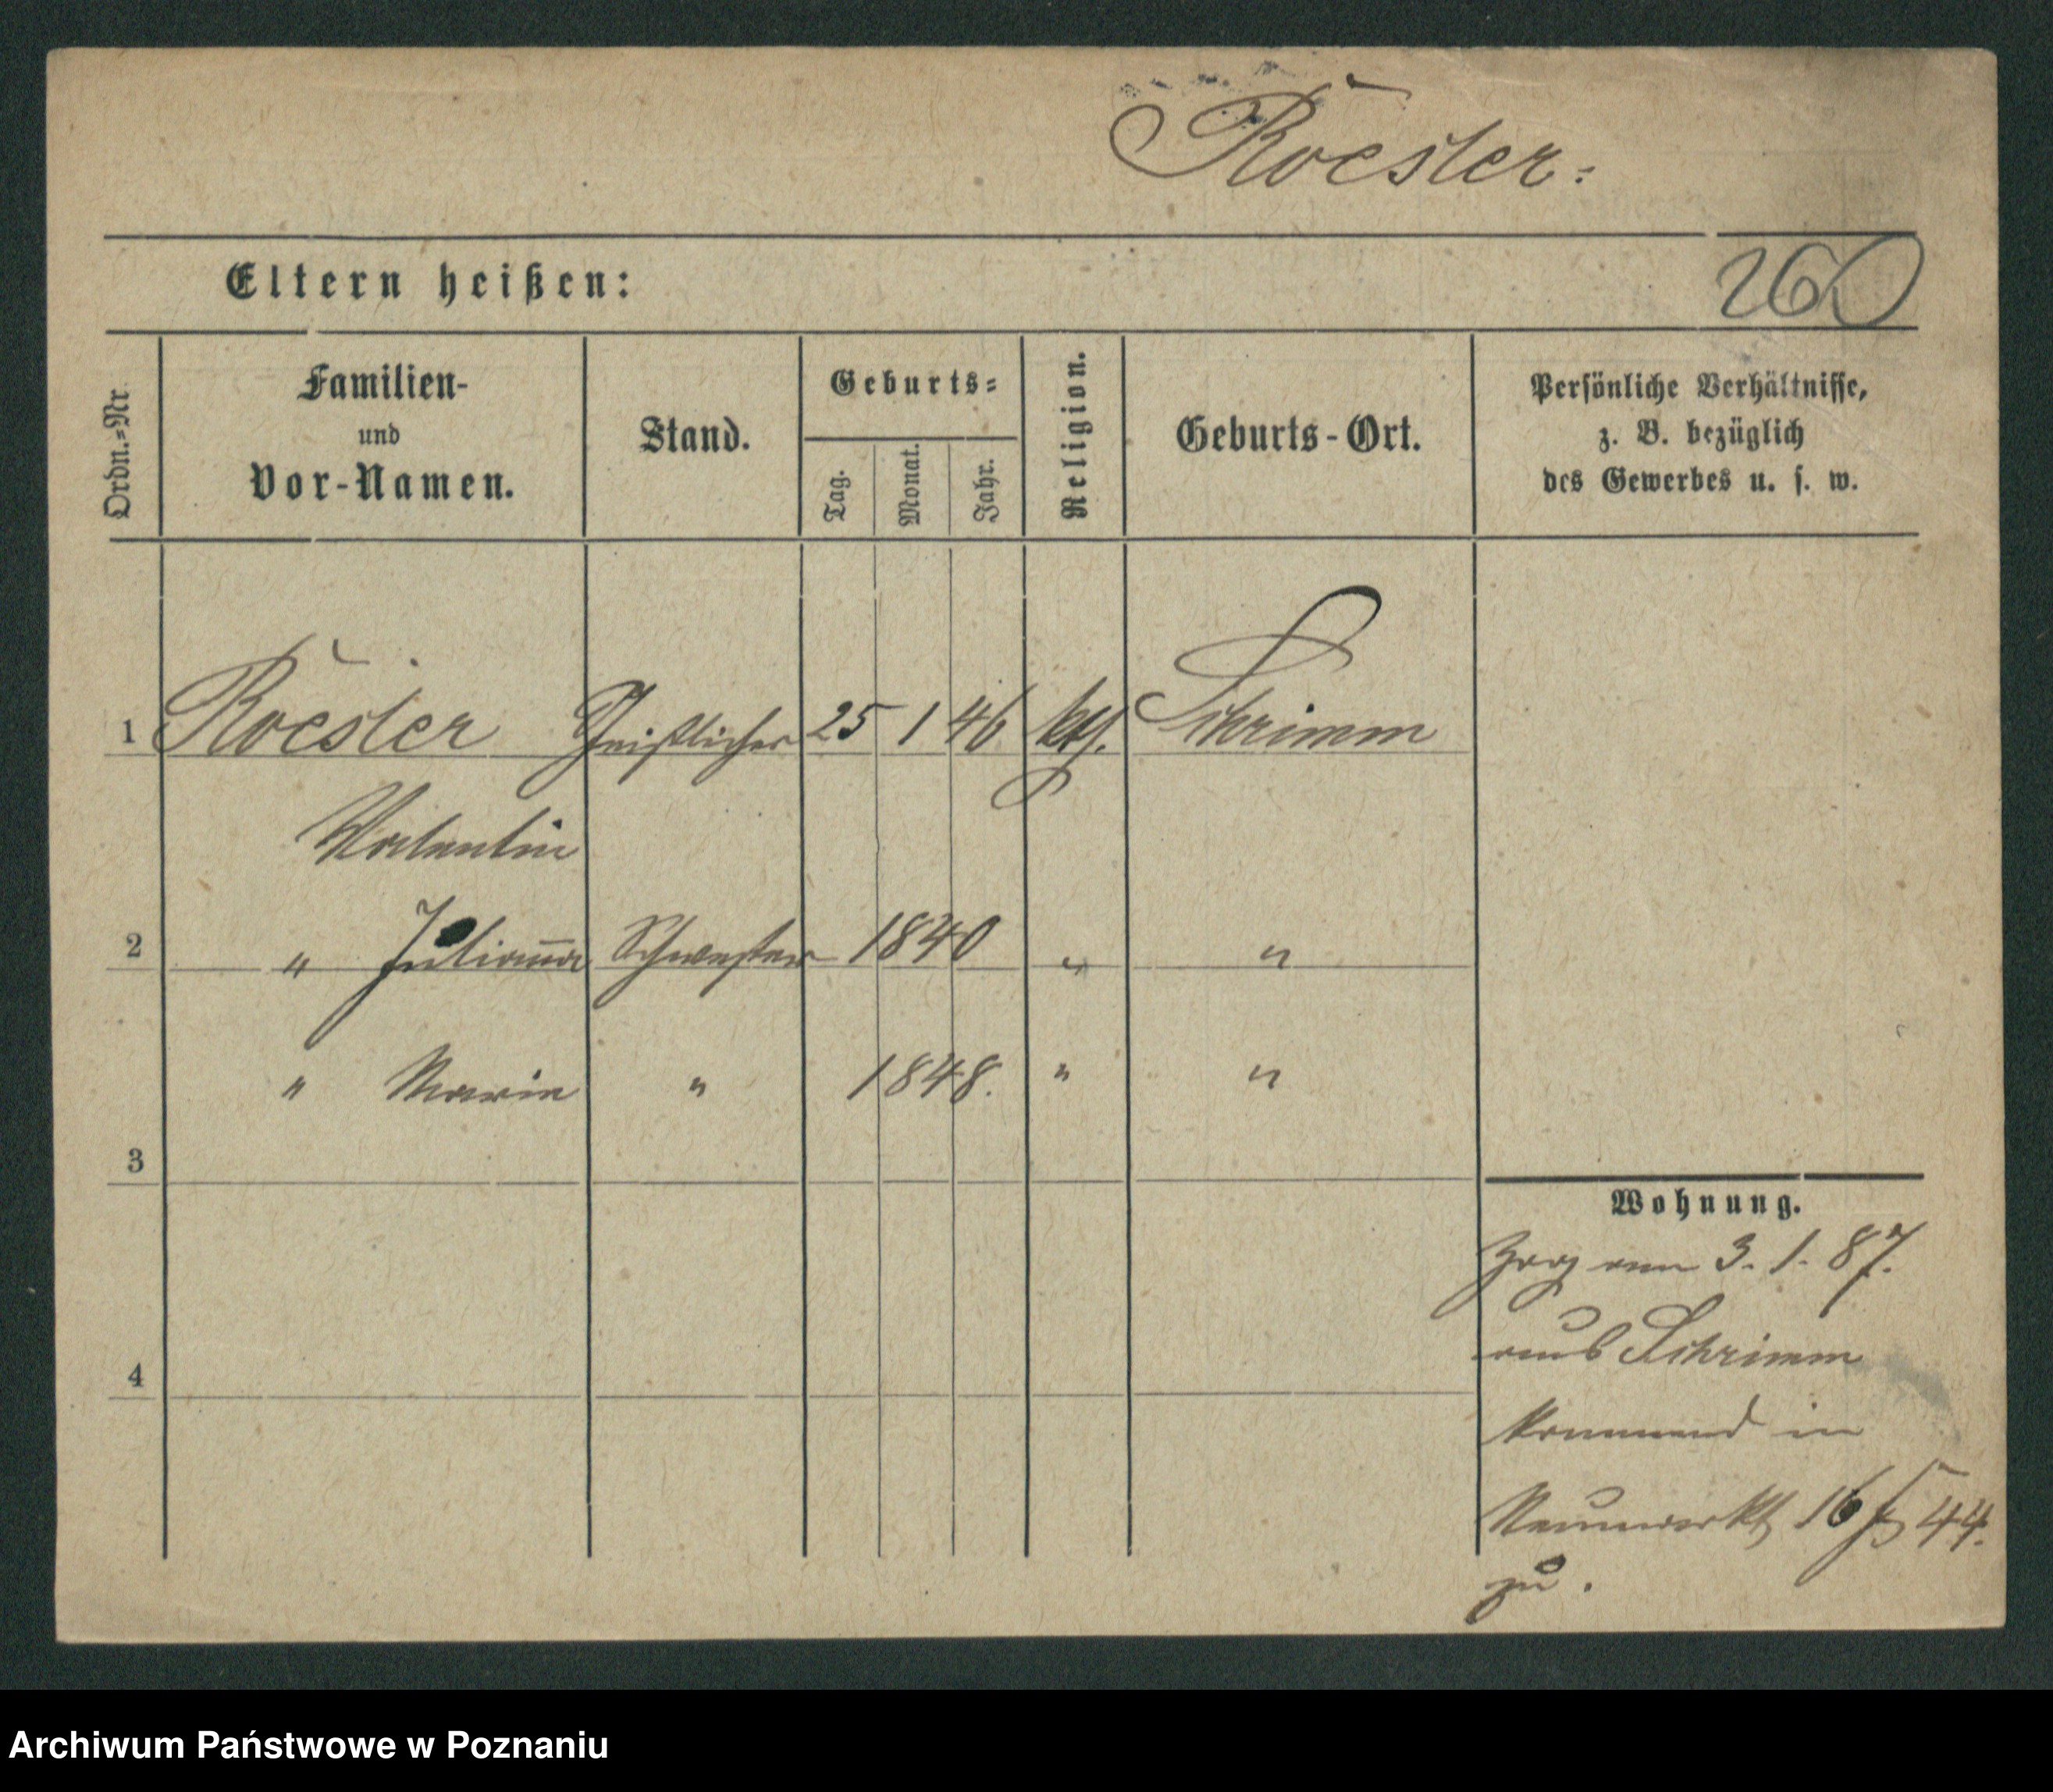 Roesler:
Eltern heißen:
260
Ordn.=Nr.
Familien-
und
Vor-Namen.
Stand.
Geburts=
Tag.
Monat.
Jahr.
Religion.
Geburts-Ort.
Persönliche Verhältnisse,
z. B. bezüglich
des Gewerbes u. s. w.
1 Roesler Geistlicher 25 1 46 kth. Schrimm
Valentin
2 " Julianna Schwester 1840 " "
" Marie " 1848. " "
3
4
Wohnung.
Zog am 3. 1. 87.
aus Schrimm
kommend in
Neumarkt 16 44.
zu.
Archiwum Państwowe w Poznaniu